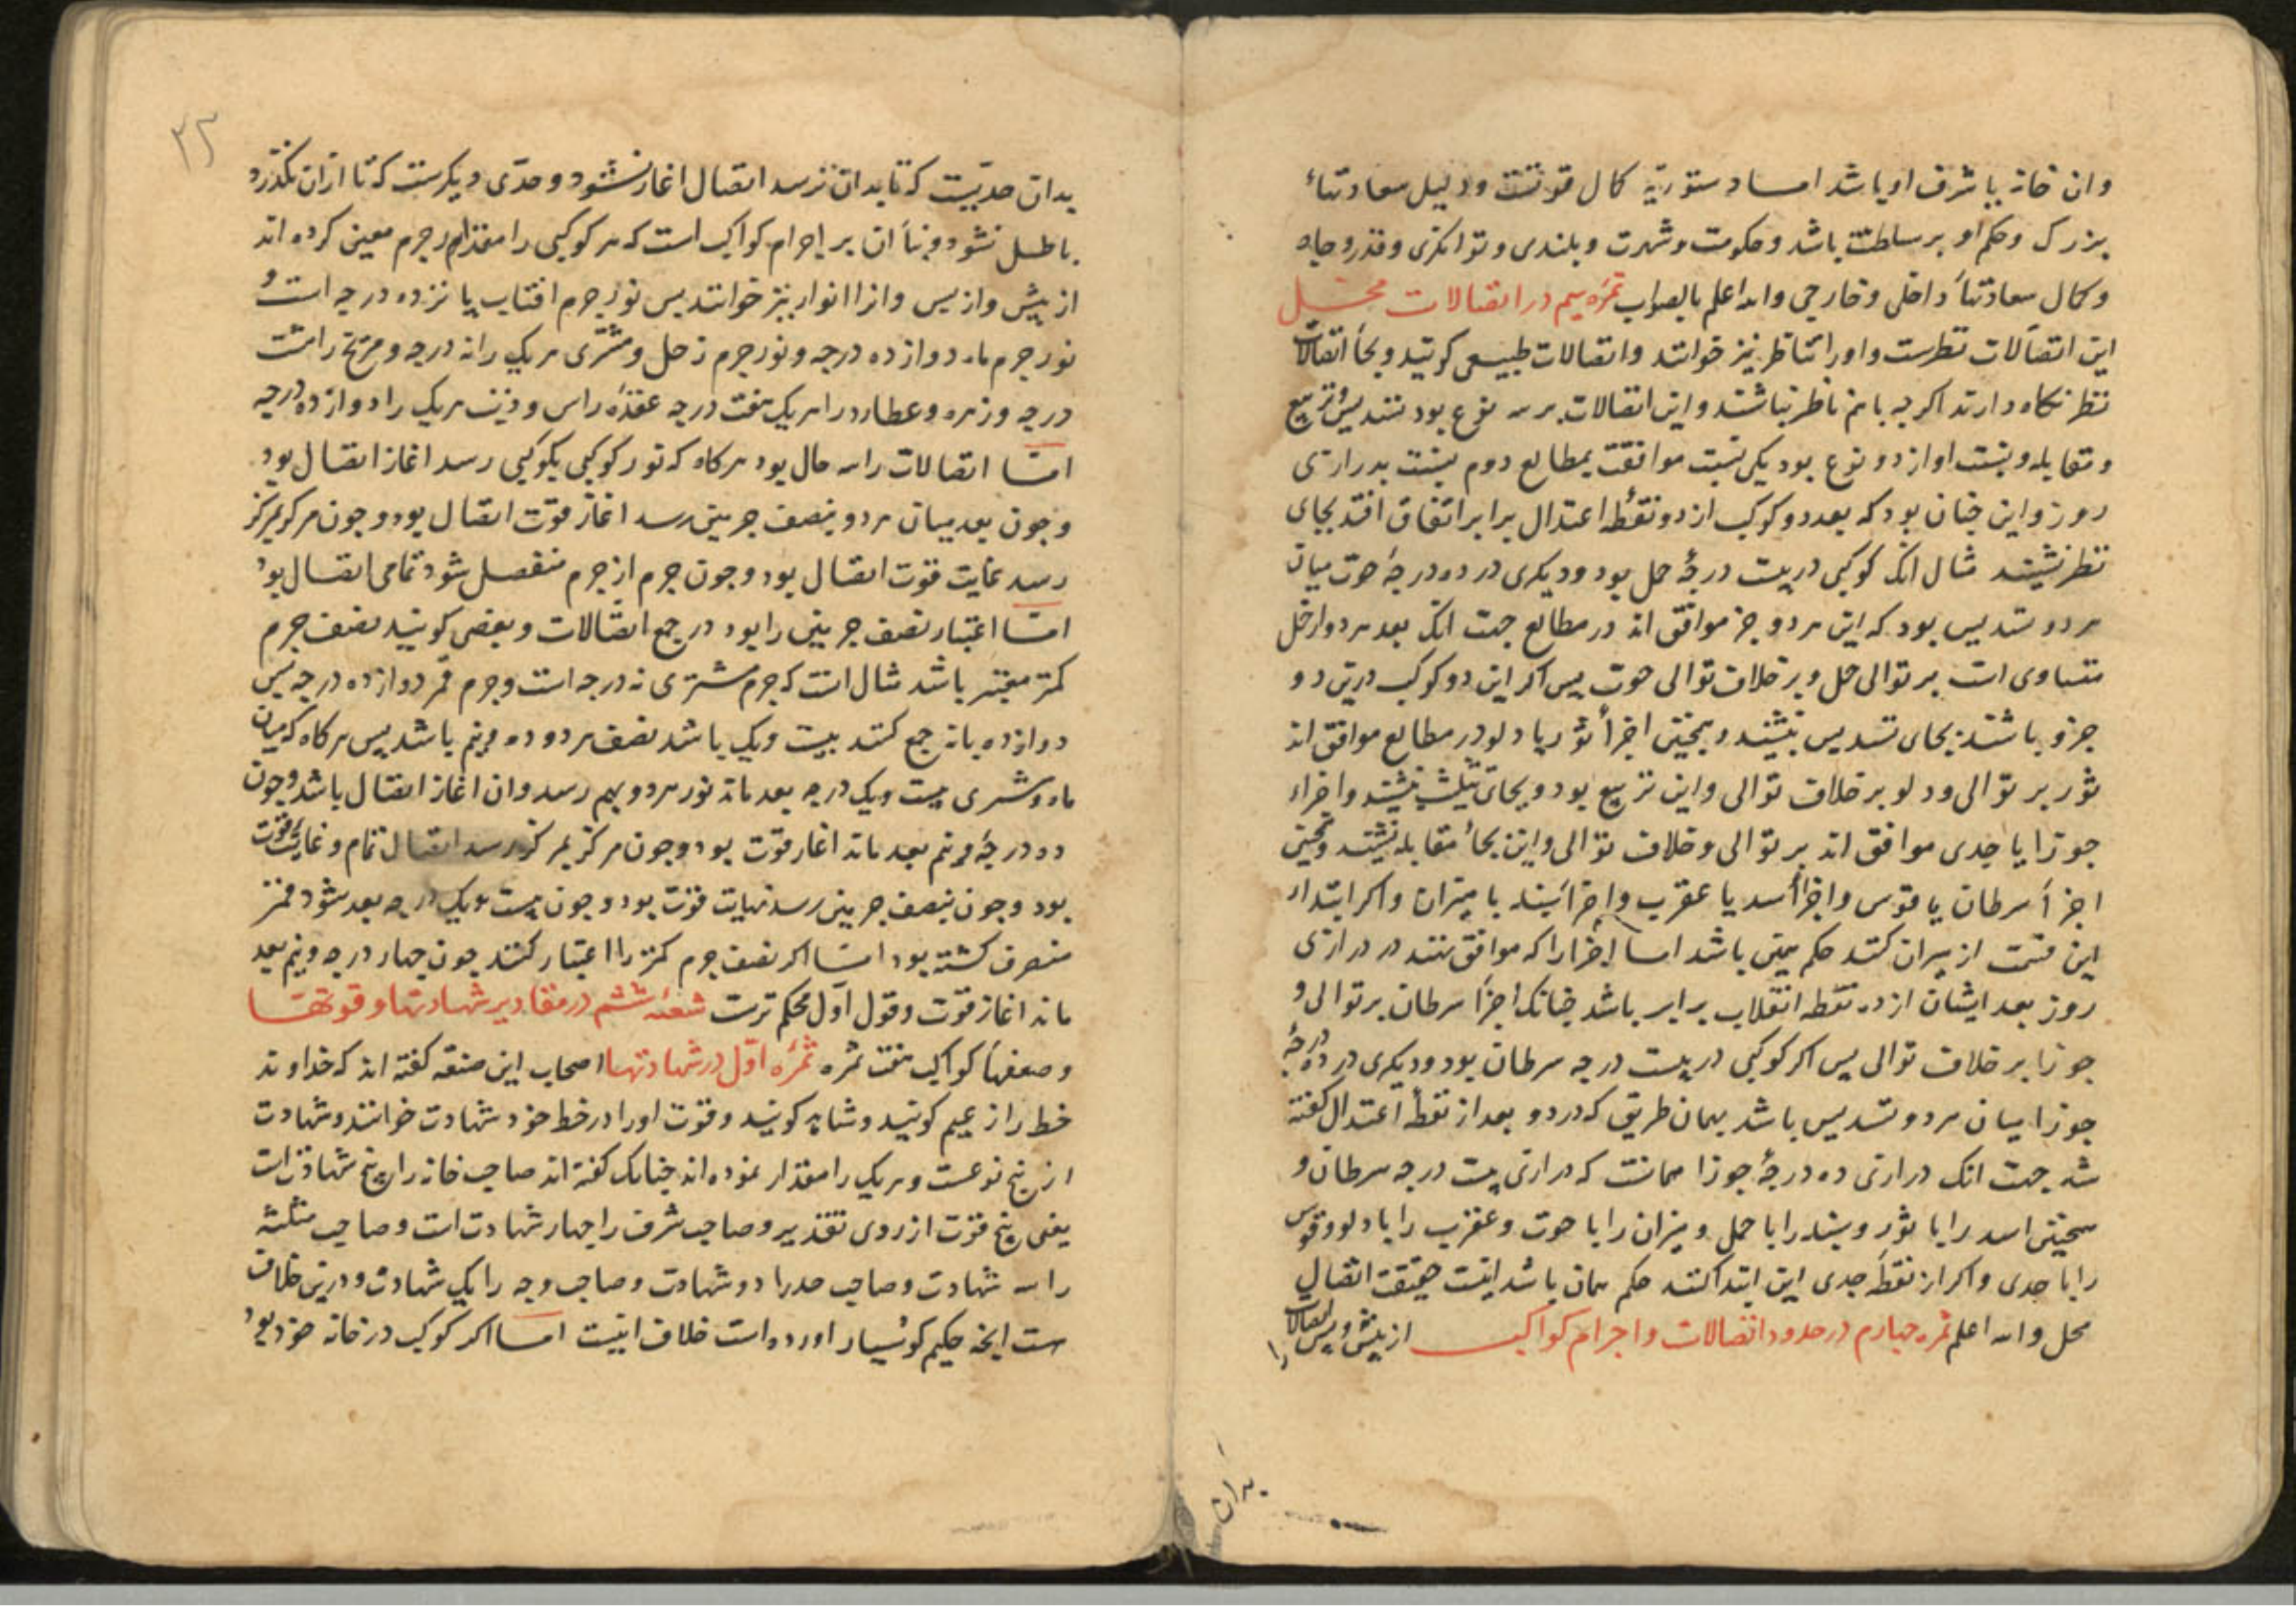 وان خانه یا شرف او باشد اما دستوریه کمال قوتست ودلیل سعادتهاء
بزرک وحکم او بر سلطنت باشد وحکومت وشهرت وبلندی وتوانکری وقدر وجاه
وکمال سعادتهاء داخلی وخارجی والله اعلم بالصواب ثمره سیم در اتصالات محل
این اتصالات نظرست واورا تناظر نیز خوانند واتصالات طبیعی کویند وبجاء اتصالات
نظر نکاه دارند اکرچه باهم ناظر نباشند واین اتصالات بر سه نوع بود تسدیس وتربیع
ومقابله ونسبت او از دو نوع بود یکی نسبت موافقت بمطالع دوم نسبت بدرازی
روز واین چنان بود که بعد دو کوکب از دو نقطه اعتدال برابر اتفاق افتد بجای
نظر نشیند مثال انک کوکبی در بیست درجهٔ حمل بود ودیکری در ده درجهٔ حوت میان
هر دو تسدیس بود که این هر دو جز موافق اند در مطالع جهت انک بعد هر دو از حمل
متساوی است بر توالی حمل وبر خلاف توالی حوت پس اکر این دو کوکب درین دو
جزو باشند بجای تسدیس نشیند وهمچنین اجزأ ثور با دلو در مطالع موافق اند
ثور بر توالی ودلو بر خلاف توالی واین تربیع بود وبجای تثلیث نشیند واجزاء
جوزا با جدی موافق اند بر توالی وخلاف توالی واین بجاء مقابله نشیند وهمچنین
اجزأ سرطان با قوس واجزأ اسد با عقرب واجزأ سنبله با میزان واکر ابتداء
این قسمت از میزان کنند حکم همین باشد اما اجزا را که موافق نهند در درازی
روز بعد ایشان از دو نقطه انقلاب برابر باشد چنانک اجزأ سرطان بر توالی و
جوزا بر خلاف توالی پس اکر کوکبی در بیست درجه سرطان بود ودیکری در ده درجهٔ
جوزا میان هر دو تسدیس باشد بهمان طریق که در دو بعد از نقطهٔ اعتدال کفته
شد جهت انک درازی ده درجهٔ جوزا همانست که درازی بیست درجه سرطان و
همچنین اسد را با ثور وسنبله را با حمل ومیزان را با حوت وعقرب را با دلو وقوس
را با جدی واکر از نقطهٔ جدی این ابتدا کنند حکم همان باشد اینست حقیقت اتصال
محل والله اعلم ثمره چهارم در حدود اتصالات واجرام کواکب از پیش وپس اتصالات را
بدان
۲۳
بدان حدیست که تا بدان نرسد اتصال اغاز نشود وحدی دیکرست که تا ازان نکذرد
باطل نشود وبنأ ان بر اجرام کواکب است که هر کوکبی را مقدار جرم معین کرده اند
از پیش واز پس وانرا انوار نیز خوانند پس نور جرم افتاب پانزده درجه است و
نور جرم ماه دوازده درجه ونور جرم زحل ومشتری هر یک را نه درجه ومریخ را هشت
درجه وزهره وعطارد را هر یک هفت درجه عقدهٔ راس وذنب هر یک را دوازده درجه
اما اتصالات را سه حال بود هرکاه که نور کوکبی بکوکبی رسد اغاز اتصال بود
وچون بعد میان هر دو بنصف جرمین رسد اغاز قوت اتصال بود وچون مرکز بمرکز
رسد غایت قوت اتصال بود وچون جرم از جرم منفصل شود تمامی اتصال بود
اما اعتبار نصف جرمین را بود در جمع اتصالات وبعضی کویند نصف جرم
کمتر معتبر باشد مثال انست که جرم مشتری نه درجه است وجرم قمر دوازده درجه پس
دوازده با نه جمع کنند بیست ویک باشد نصف هر دو ده ونیم باشد پس هرکاه که میان
ماه ومشتری بیست ویک درجه بعد ماند نور هر دو بهم رسد وان اغاز اتصال باشد وچون
ده درجهٔ ونیم بعد ماند اغاز قوت بود وچون مرکز بمرکز رسد اتصال تمام وغایت قوت
بود وچون بنصف جرمین رسد نهایت قوت بود وچون بیست ویک درجه بعد شود قمر
منصرف کشته بود اما اکر نصف جرم کمتر را اعتبار کنند چون چهار درجه ونیم بعد
ماند اغاز قوت وقول اول محکم ترست شعبه ششم در مقادیر شهادتها وقوتها
وضعفهاء کواکب هفت ثمره ثمرهٔ اول در شهادتها اصحاب این صنعه کفته اند که خداوند
خط را زعیم کویند وشاهد کویند وقوت اورا در خط خود شهادت خوانند وشهادت
از پنج نوعست وهر یک را مقدار نموده اند چنانک کفته اند صاحب خانه را پنج شهادتست
یعنی پنج قوت از روی تقدیر وصاحب شرف را چهار شهادت است وصاحب مثلثه
را سه شهادت وصاحب حد را دو شهادت وصاحب وجه را یک شهادت ودرین خلاف
ست انچه حکیم کوشیار اورده است خلاف اینست اما اکر کوکب در خانه خود بود